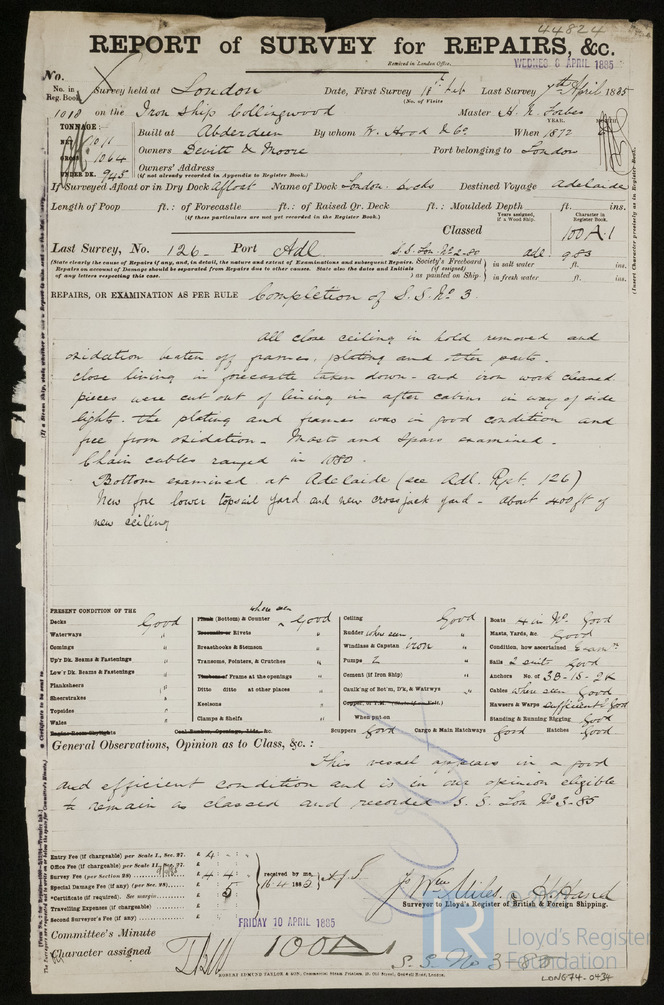 44824
REPORT of SURVEY for REPAIRS, &c.
Received in London Office, WEDNES 8 APRIL 1885
No.
No. in Reg. Book 1018 Survey held at London Date, First Survey 18th Feb Last Survey 7th April 1885
(No. of Visits )
on the Iron Ship Collingwood Master A. N. Forbes
TONNAGE: Built at Aberdeen By whom W. Hood & Co. When 1872
YEAR. MONTH
NET 1011
GROSS 1064 Owners Devitt & Moore Port belonging to London
UNDER DK. 945 Owners' Address
(if not already recorded in Appendix to Register Book.)
If Surveyed Afloat or in Dry Dock afloat Name of Dock London Docks Destined Voyage Adelaide
Length of Poop ft.: of Forecastle ft.: of Raised Qr. Deck ft.: Moulded Depth ft. ins.
(if these particulars are not yet recorded in the Register Book.)
Classed Years assigned, if a Wood Ship. Character in Register Book. 100 A.1
Last Survey, No. 126 Port Adl S.S. Lon. No. 2-80 adl. 9.83
(State clearly the cause of Repairs if any, and, in detail, the nature and extent of Examinations and subsequent Repairs. Repairs on account of Damage should be separated from Repairs due to other causes. State also the dates and Initials of any letters respecting this case.
Society's Freeboard (if assigned) as painted on Ship in salt water ft. ins.
in fresh water ft. ins.
REPAIRS, OR EXAMINATION AS PER RULE Completion of S.S. No. 3
All close ceiling in hold removed and
oxidation beaten off frames, plating and other parts.
Close lining in forecastle taken down and iron work cleaned
pieces were cut out of lining in after cabins in way of side
lights. the plating and frames was in good condition and
free from oxidation. Masts and Spars examined.
Chain cables ranged in 1880.
Bottom examined at Adelaide (see Adl. Rpt. 126)
New fore lower topsail yard and new crossjack yard - about 400 ft of
new ceiling
PRESENT CONDITION OF THE
Decks Good
Waterways "
Comings "
Upr Dk. Beams & Fastenings "
Lowr Dk. Beams & Fastenings "
Planksheers "
Sheerstrakes "
Topsides "
Wales "
Plank (Bottom) & Counter where seen Good
Treenails or Rivets "
Breasthooks & Stemson "
Transoms, Pointers, & Crutches "
Timbers of Frame at the openings "
Ditto ditto at other places "
Keelsons "
Clamps & Shelfs "
Ceiling Good
Rudder where seen "
Windlass & Capstan iron "
Pumps 2 "
Cement (if Iron Ship) "
Caulkng of Botm, Dk, & Watrwys "
When put on
Scuppers Good
Cargo & Main Hatchways Good
Boats 4 in No. Good
Masts, Yards, &c. Good
Condition, how ascertained Examn.
Sails 2 suits Good
Anchors No. of 3B-1S-2K
Cables where seen Good
Hawsers & Warps sufficient & Good
Standing & Running Rigging Good
Hatches Good
General Observations, Opinion as to Class, &c.:
This vessel appears in a good
and efficient condition and is in our opinion eligible
to remain as classed and recorded S.S. Lon No 3-85
Entry Fee (if chargeable) per Scale I., Sec. 27. £ 4 : :
Office Fee (if chargeable) per Scale II., Sec. 27. £ : :
Survey Fee (per Section 28) £ 4 : 4 :
Special Damage Fee (if any) (per Sec. 28) £ : :
*Certificate (if required). See margin. £ 5
Travelling Expenses (if chargeable) £ : :
Second Surveyor's Fee (if any) £ : :
received by me,
16.4.1885
Jno Wm Miles & H. Hand
Surveyor to Lloyd's Register of British & Foreign Shipping.
Committee's Minute FRIDAY 10 APRIL 1885
Character assigned 100A
S.S. No 3-85
ROBERT EDMUND TAYLOR & SON, Commercial Steam Printers, 19, Old Street, Goswell Road, London.
LR Lloyd's Register
Foundation
LON674-0434